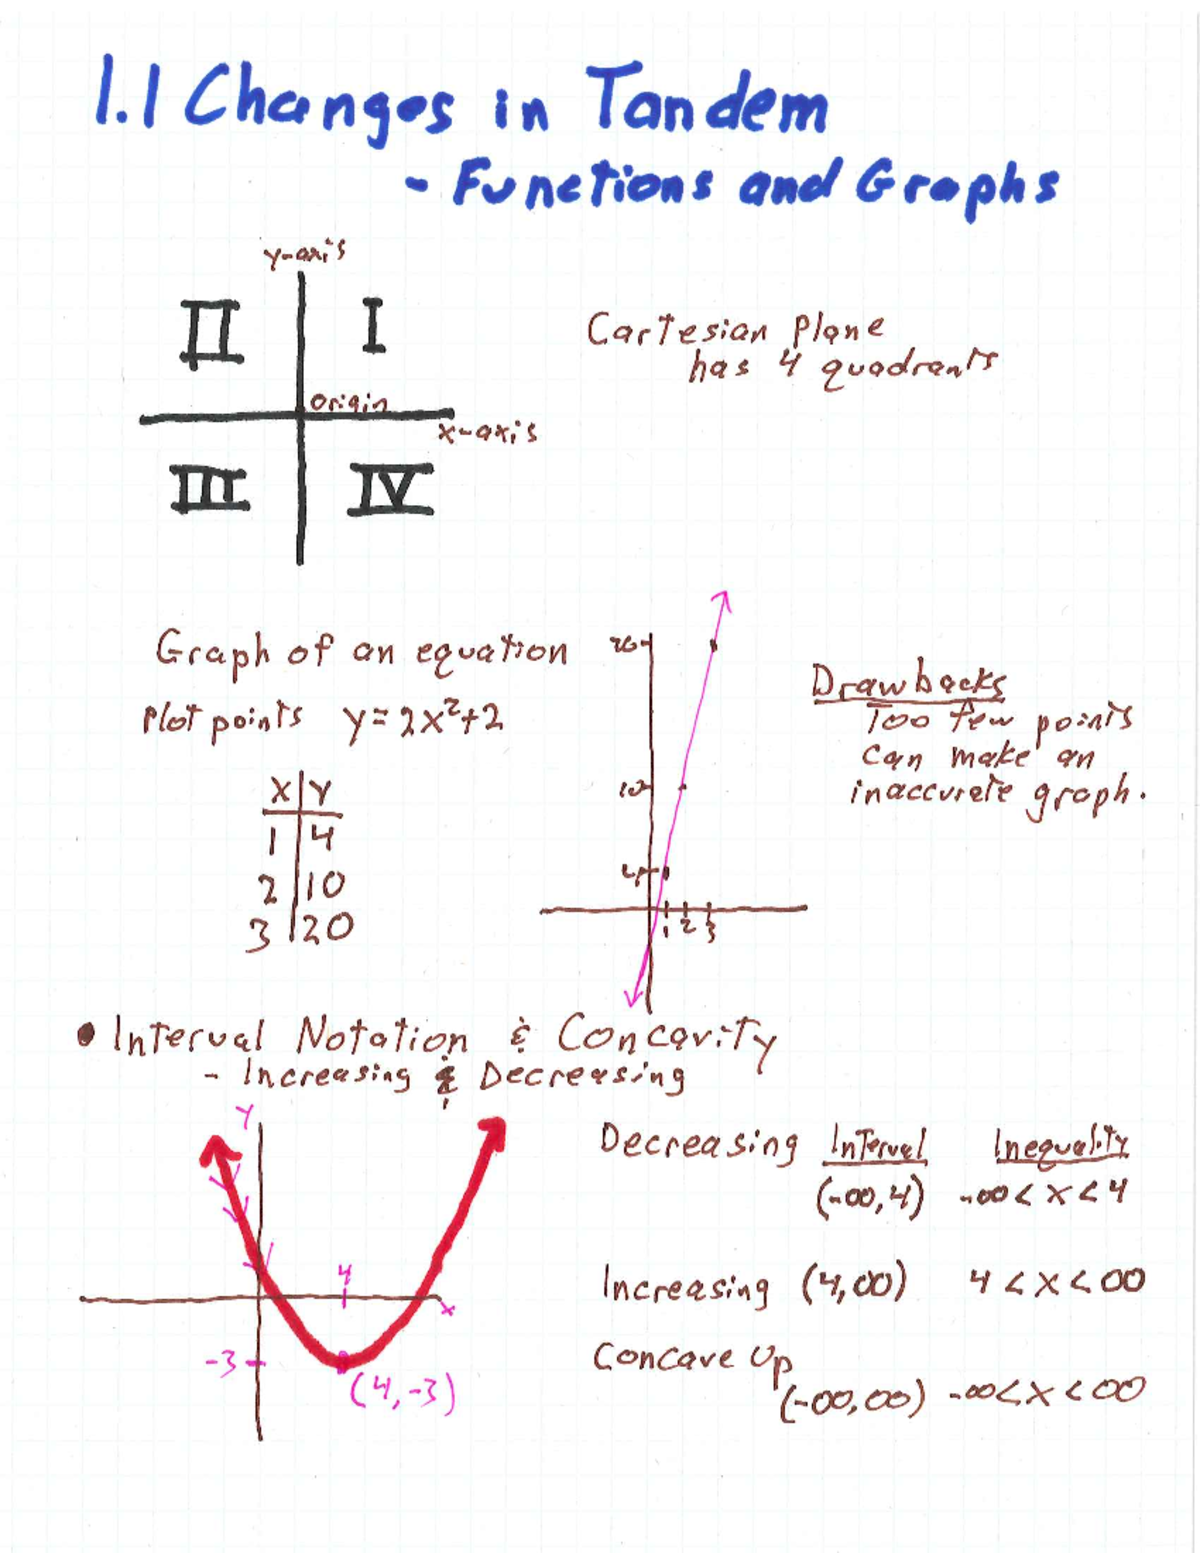 1.1 Changes in Tandem
- Functions and Graphs
y-axis
II I
Cartesian Plane
has 4 quadrants
Origin
x-axis
III IV
Graph of an equation
Plot points y=2x²+2
x y
1 4
2 10
3 20
20
10
4
1 2 3
Drawbacks
Too few points
can make an
inaccurate graph.
• Interval Notation & Concavity
- Increasing & Decreasing
y
4
x
-3
(4,-3)
Decreasing Interval Inequality
(-∞,4) -∞<x<4
Increasing (4,∞) 4<x<∞
Concave Up
(-∞,∞) -∞<x<∞